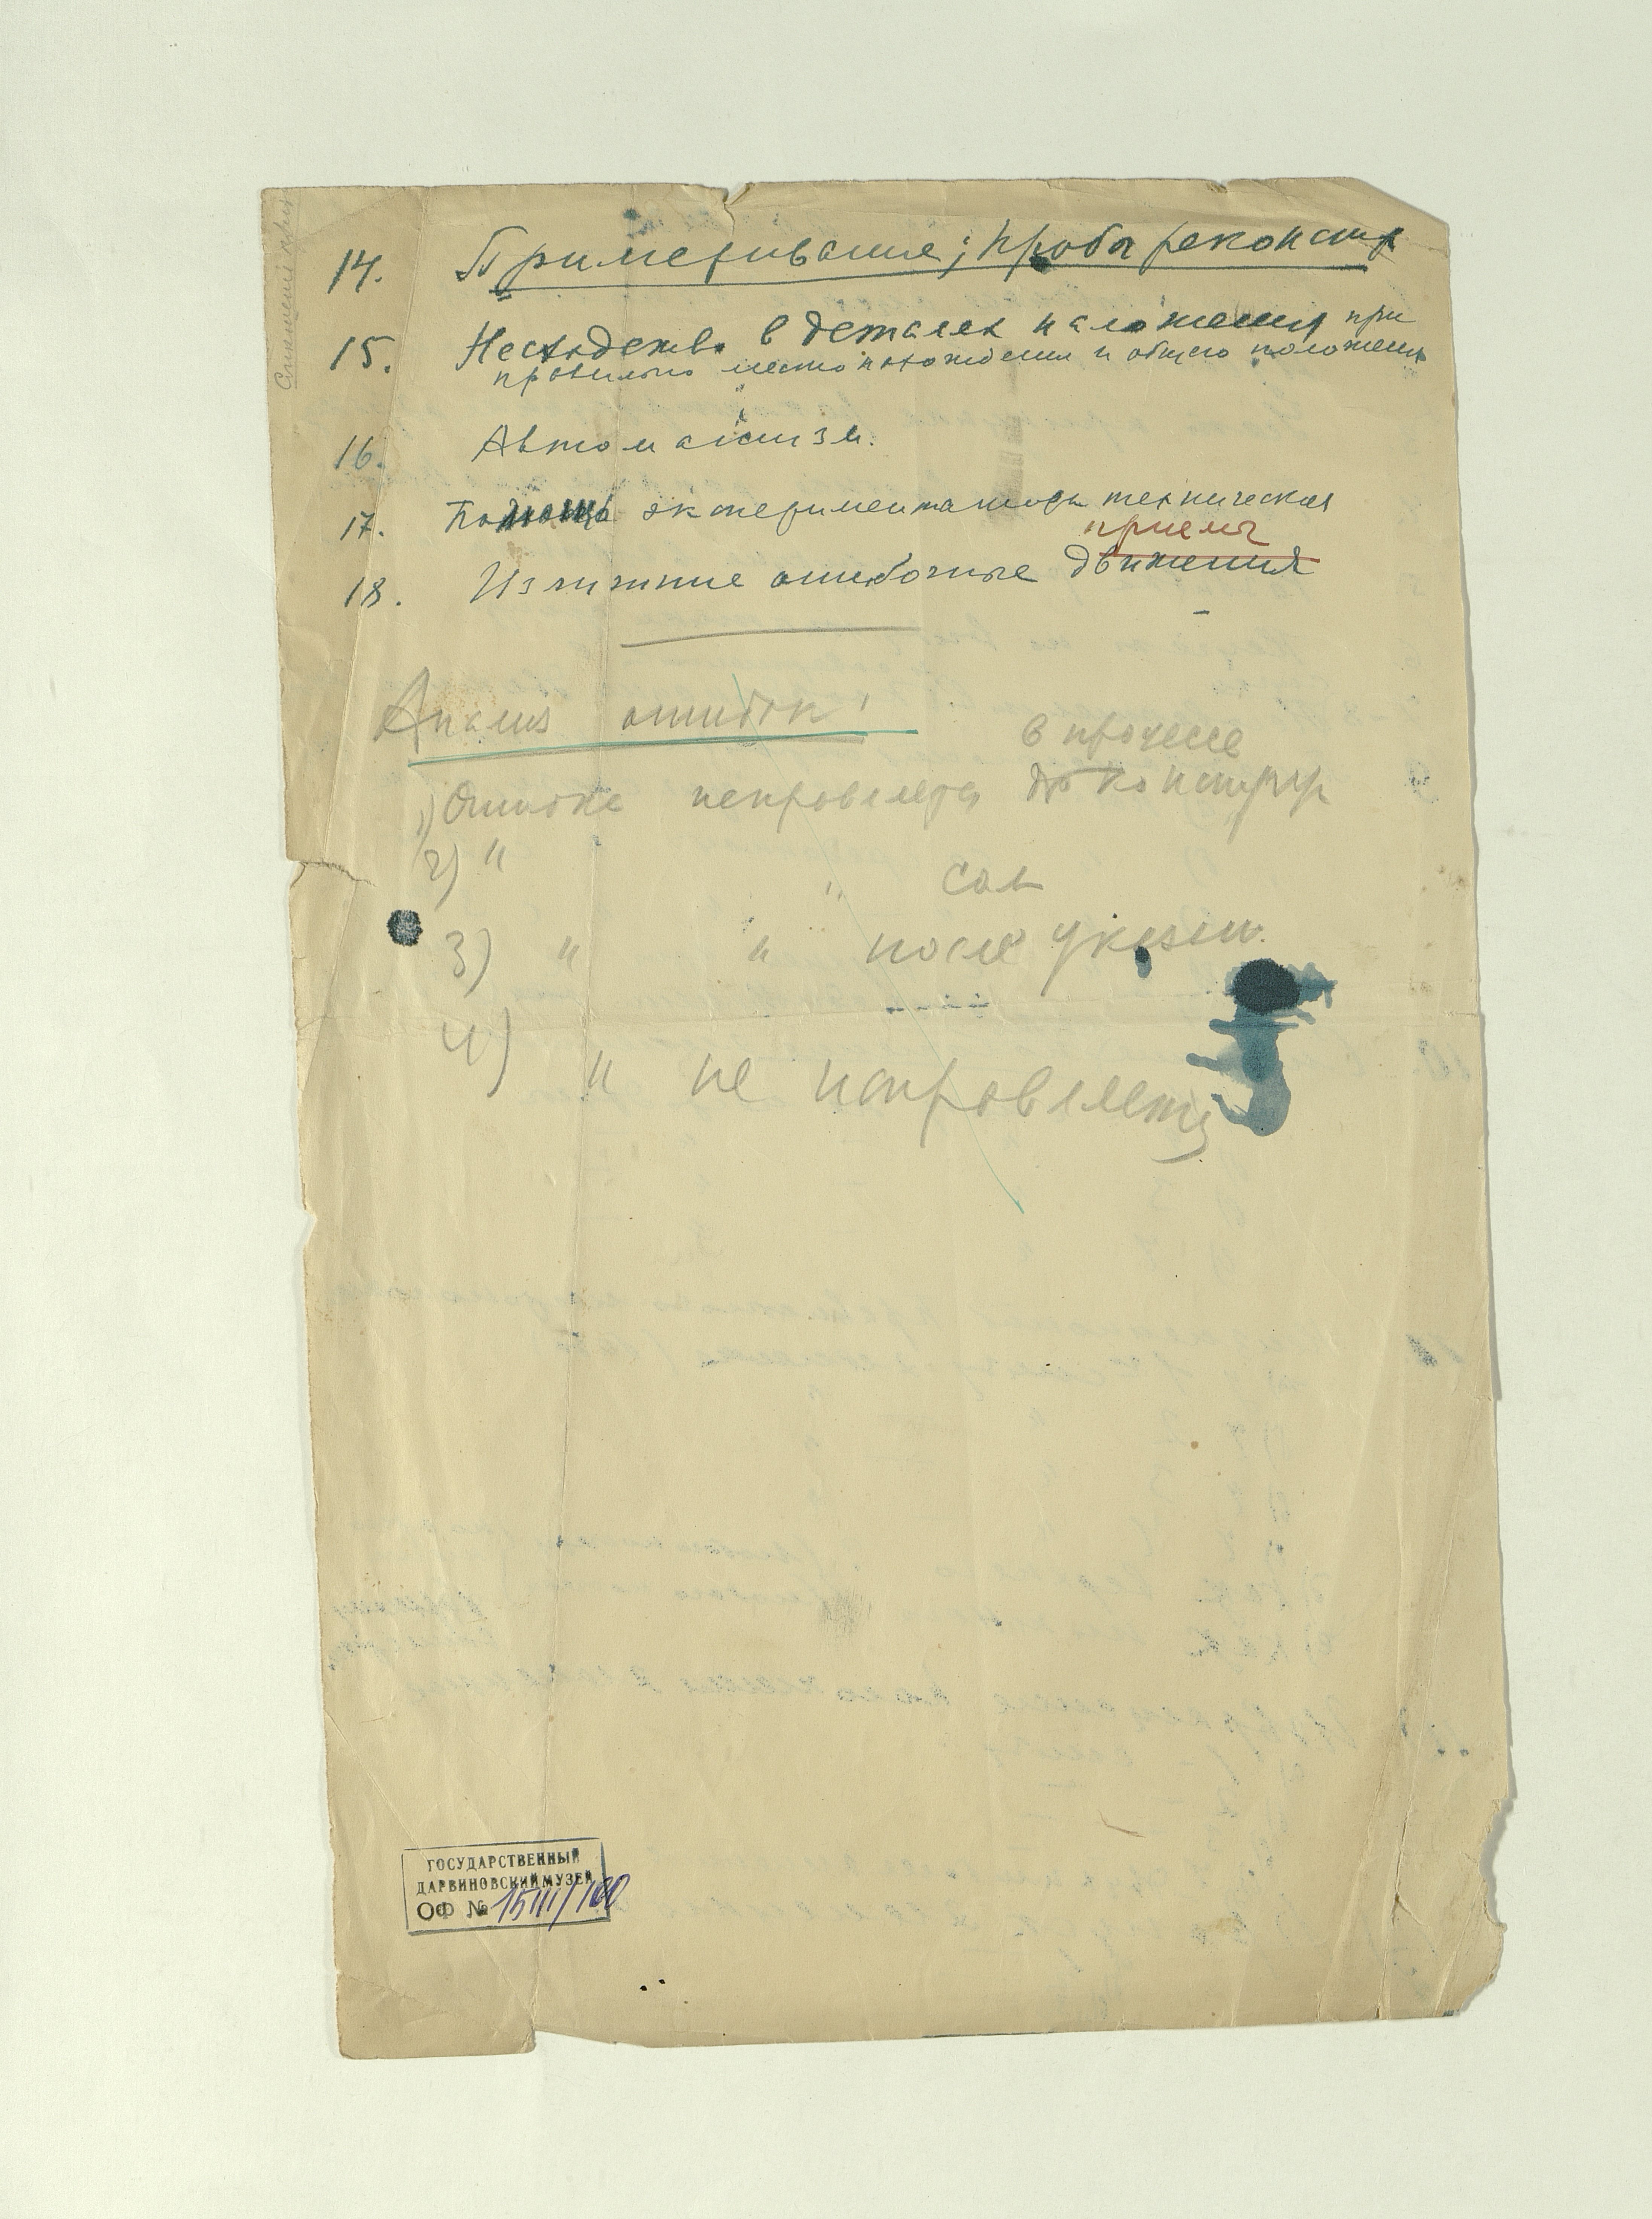 14. Примеривание; проба реконстр
15. Несходство в деталях наложения при
правильно местонахождении и общего положения
16. Автоматизм.
17. Помощь экспериментатора техническая
приемы
18. Излишние ошибочные движения
Анализ ошибок:
в процессе
1) Ошибка исправляется конструир
2) " " сам
3) " " после указан.
4) " не исправляется
ГОСУДАРСТВЕННЫЙ
ДАРВИНОВСКИЙ МУЗЕЙ
ОФ № 15111/100